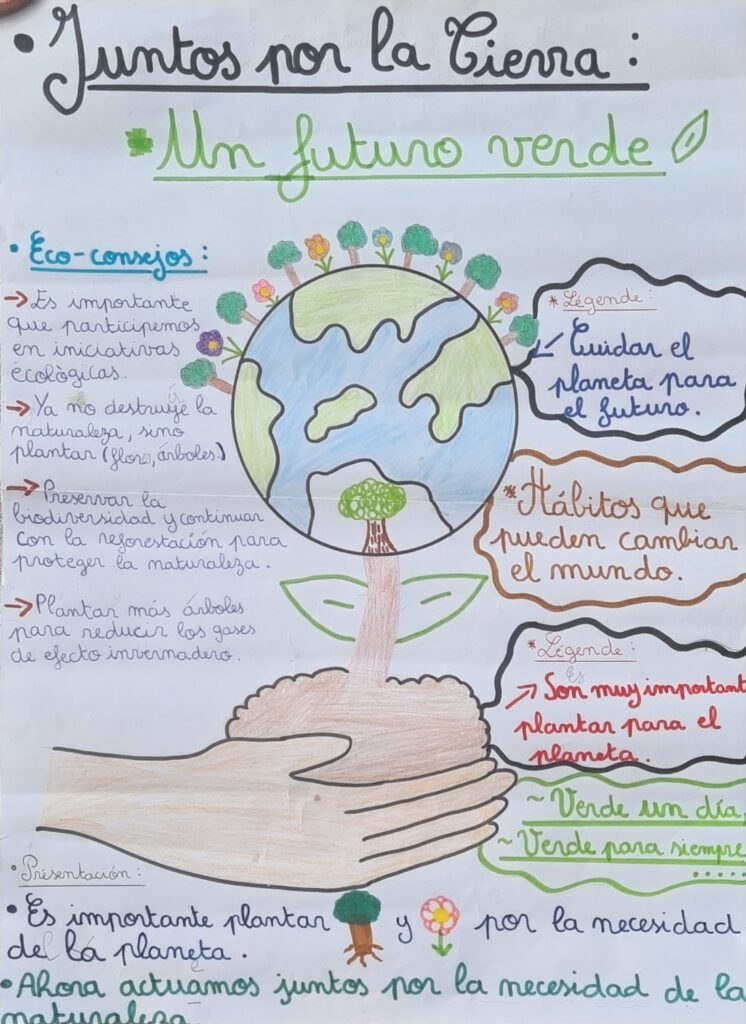 • Juntos por la Tierra :
* Un futuro verde
• Eco-consejos :
→ Es importante
que participemos
en iniciativas
écològicas.
→ Ya no destruye la
naturaleza, sino
plantar (flores, árboles.)
→ Preservar la
biodiversidad y continuar
con la reforestación para
proteger la naturaleza.
→ Plantar más árboles
para reducir los gases
de efecto invernadero.
* Légende :
↙ Cuidar el
planeta para
el futuro.
* Hábitos que
pueden cambiar
el mundo.
* Légende :
Es
↗ Son muy important
plantar para el
planeta.
~ Verde un día,
~ Verde para siempre
.....
• Présentación :
• Es importante plantar y por la necesidad
de la planeta.
• Ahora actuamos juntos por la necesidad de la
naturaleza